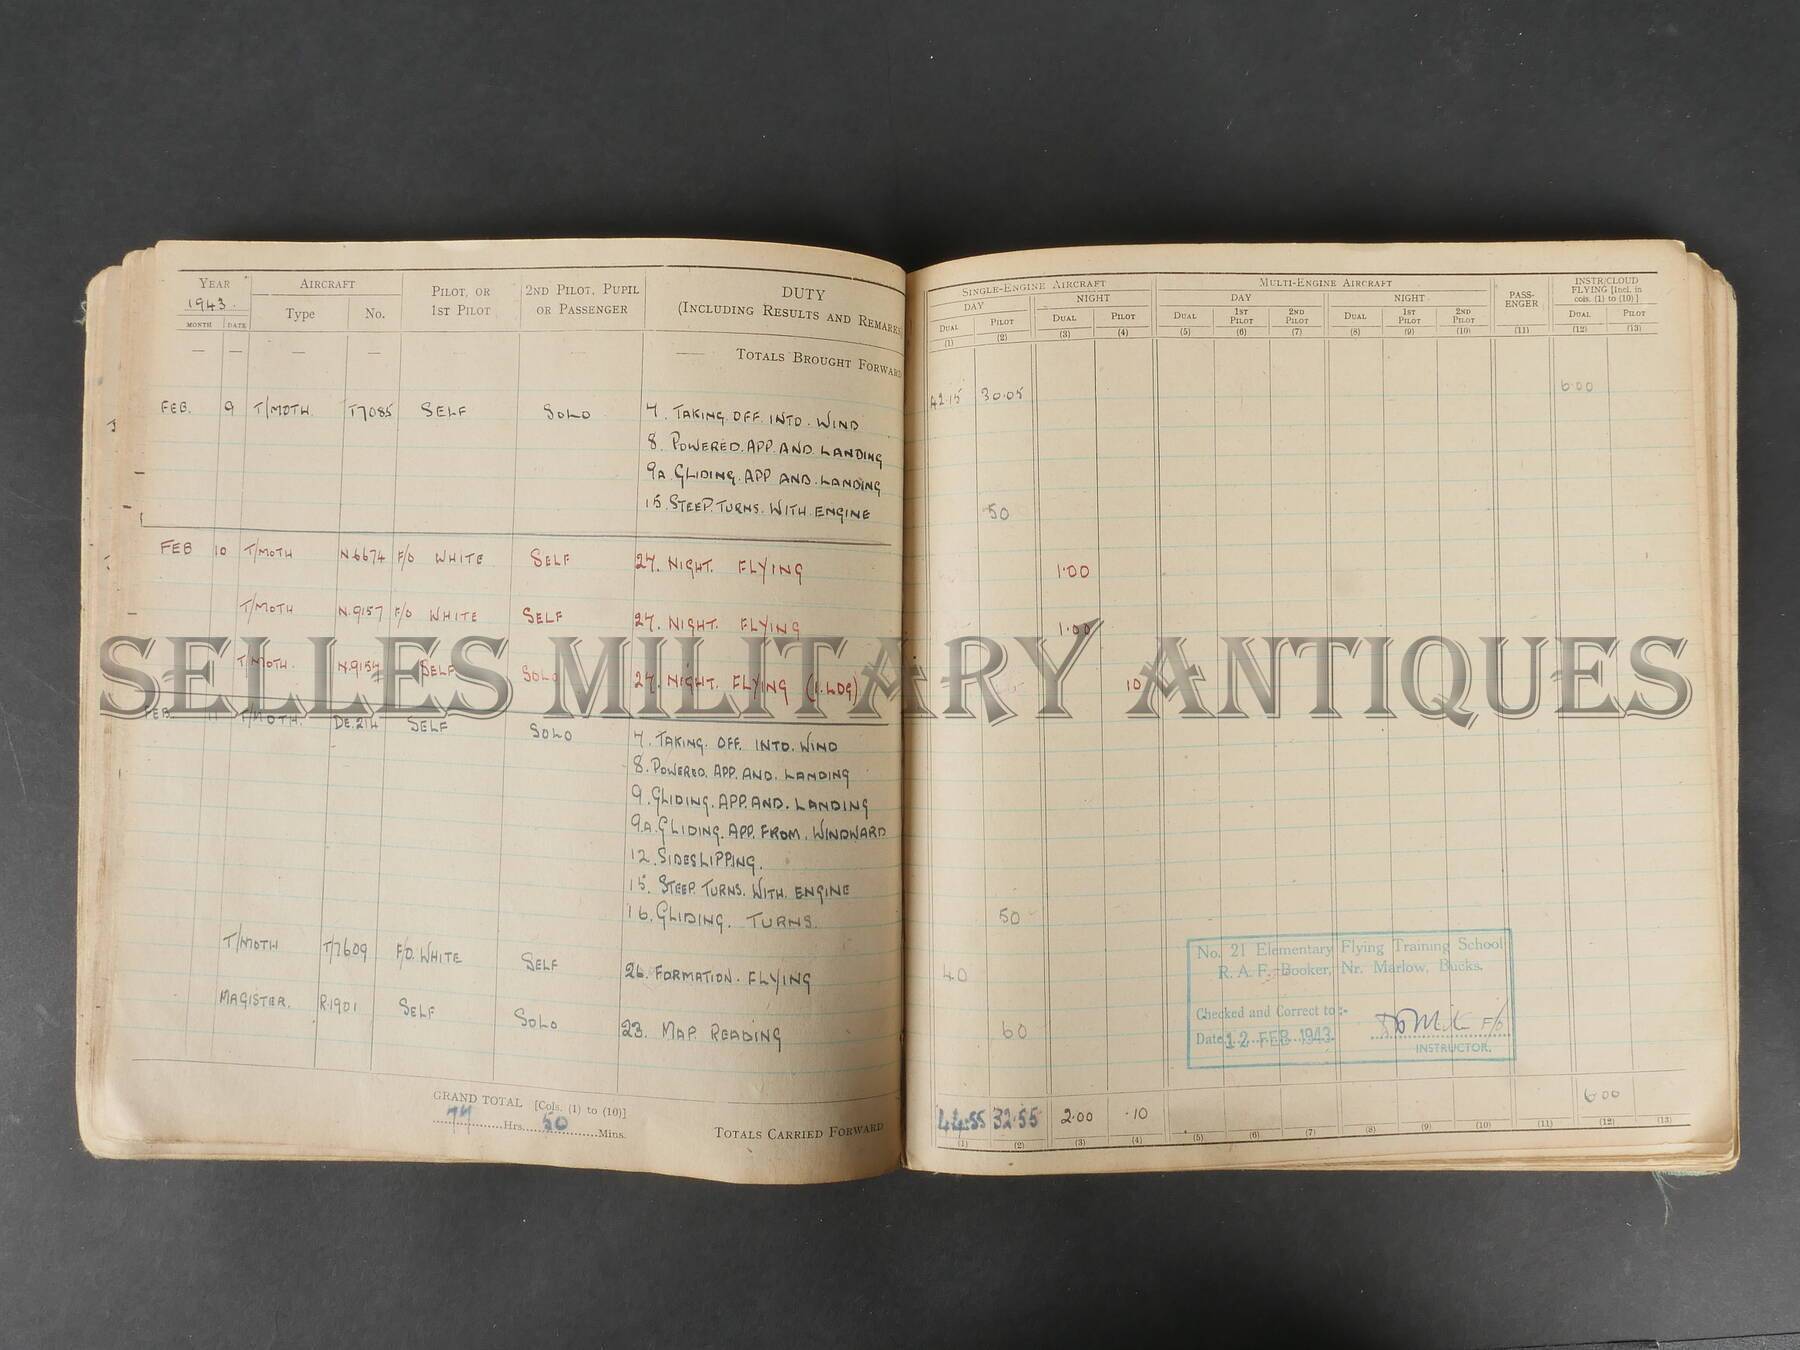 YEAR AIRCRAFT PILOT, OR 1ST PILOT 2ND PILOT, PUPIL OR PASSENGER DUTY (INCLUDING RESULTS AND REMARKS)
1943. Type No.
MONTH DATE
— — — — — — — TOTALS BROUGHT FORWARD
FEB. 9 T/MOTH. T7085 SELF SOLO 7. TAKING. OFF. INTO. WIND
8. POWERED. APP. AND. LANDING
9A. GLIDING. APP AND. LANDING
15. STEEP. TURNS. WITH. ENGINE
FEB 10 T/MOTH N.6674 F/O WHITE SELF 27. NIGHT. FLYING
T/MOTH N.9157 F/O WHITE SELF 27. NIGHT. FLYING
T/MOTH. N.9157 SELF SOLO 27. NIGHT. FLYING (1. LDG)
FEB. 11 T/MOTH. DE.214 SELF SOLO 7. TAKING. OFF. INTO. WIND
8. POWERED. APP. AND. LANDING
9. GLIDING. APP. AND. LANDING
9.A. GLIDING. APP. FROM. WINDWARD
12. SIDESLIPPING.
15. STEEP. TURNS. WITH. ENGINE
16. GLIDING. TURNS.
T/MOTH T/7609 F/O. WHITE SELF 26. FORMATION. FLYING
MAGISTER. R.1901 SELF SOLO 23. MAP. READING
GRAND TOTAL [Cols. (1) to (10)]
77 Hrs. 50 Mins.
TOTALS CARRIED FORWARD
SINGLE-ENGINE AIRCRAFT MULTI-ENGINE AIRCRAFT PASS-ENGER INSTR/CLOUD FLYING [Incl. in cols. (1) to (10)]
DAY NIGHT DAY NIGHT
DUAL PILOT DUAL PILOT DUAL 1ST PILOT 2ND PILOT DUAL 1ST PILOT 2ND PILOT DUAL PILOT
(1) (2) (3) (4) (5) (6) (7) (8) (9) (10) (11) (12) (13)
42.15 30.05 6.00
50
1.00
1.00
10
50
40
60
No. 21 Elementary Flying Training School
R. A. F. Booker, Nr. Marlow, Bucks.
Checked and Correct to:-
Date 12 FEB 1943 F/O
INSTRUCTOR.
44.55 32.55 2.00 .10 6.00
(1) (2) (3) (4) (5) (6) (7) (8) (9) (10) (11) (12) (13)
SELLES MILITARY ANTIQUES